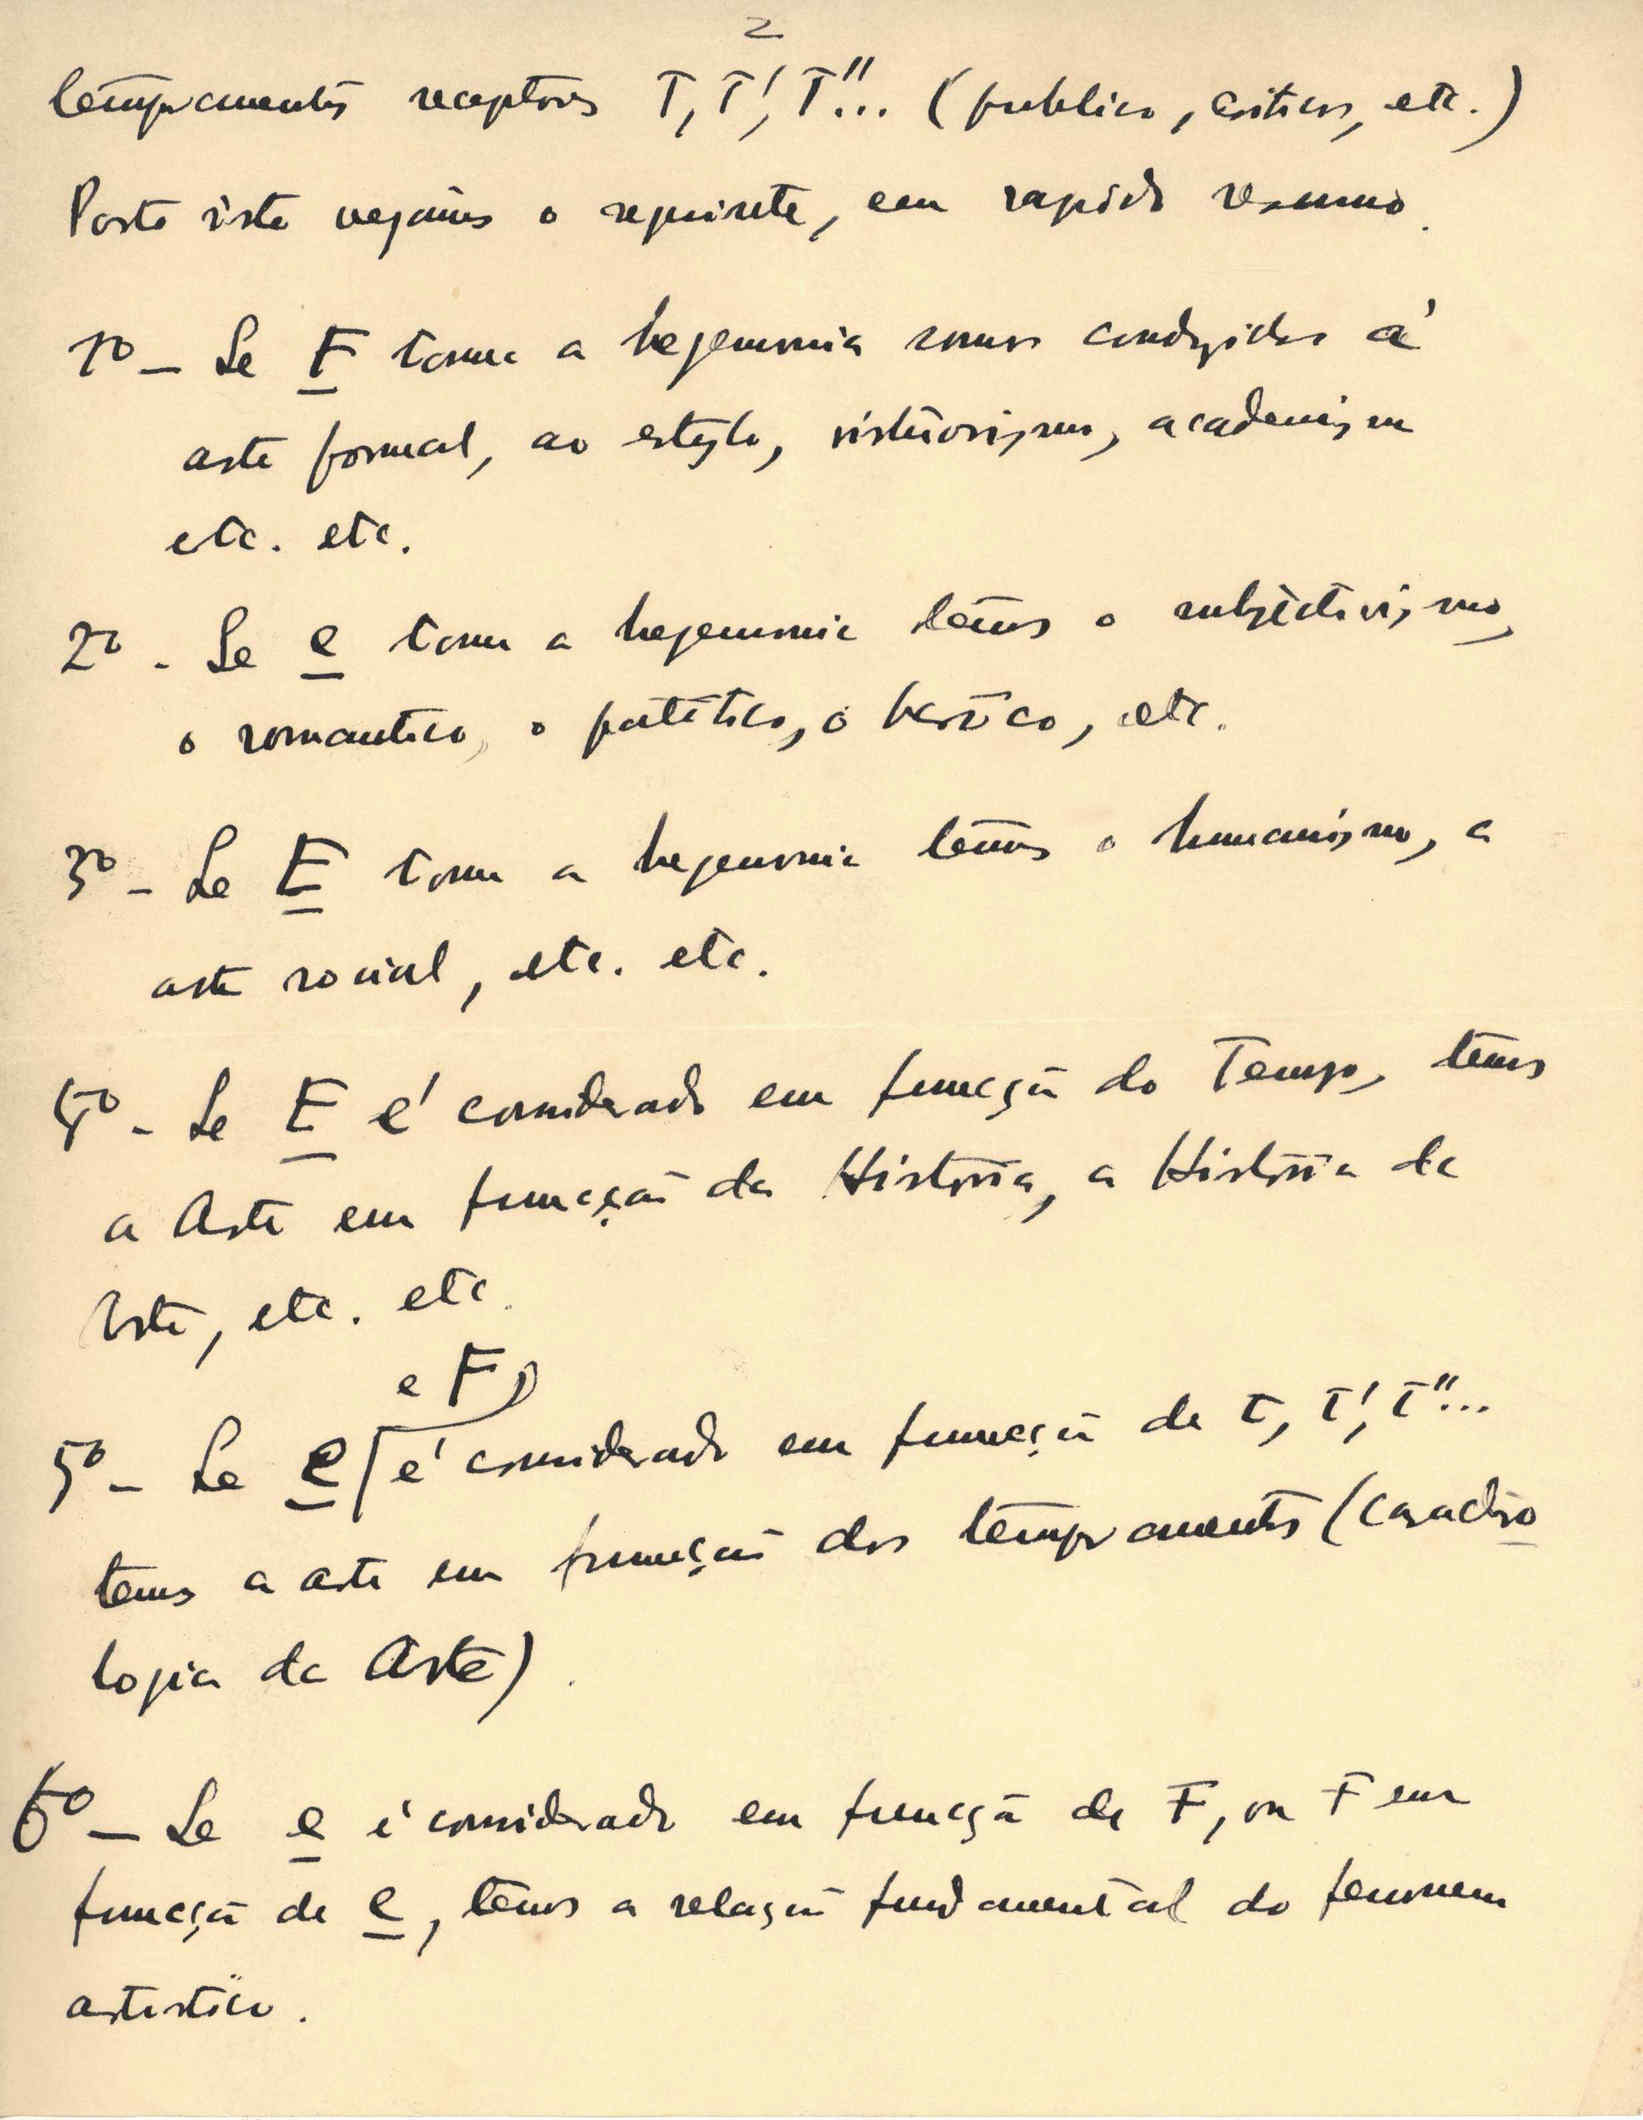 2
temperamentos receptores T, T', T''... (publico, criticos, etc.)
Posto isto vejâmos o seguinte, em rapido resumo.
1º — Se F toma a hegemonia somos conduzidos á
arte formal, ao estylo, virtuosismo, academismo
etc. etc.
2º - Se e toma a hegemonia temos o subjectivismo,
o romantico, o patético, o heróico, etc.
3º - Se E toma a hegemonia temos o humanismo, a
arte social, etc. etc.
4º - Se E é considerado em funcção do Tempo, temos
a Arte em funcção da História, a História da
Arte, etc. etc.
e F
5º - Se e é considerado em funcção de T, T', T''...
temos a arte em funcção dos temperamentos (caractero
logia da Arte).
6º — Se e é considerado em funcção de F, ou F em
funcção de e, temos a relação fundamental do fenomeno
artistico.